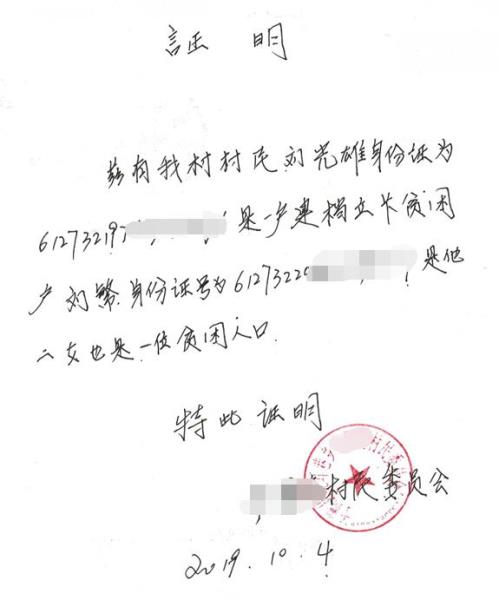 証 明
兹有我村村民刘光雄身份证为
612732197 是一户建档立卡贫困
户刘繁身份证号为6127322 是他
二女也是一位贫困人口.
特此证明
村民委员会
2019.10.4